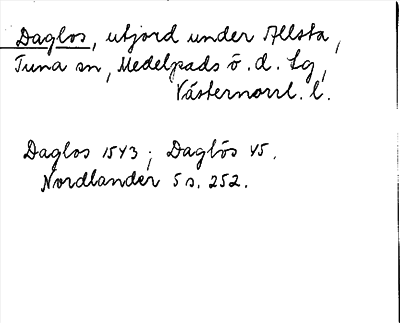 Daglos, utjord under Allsta,
Tuna sn, Medelpads ö. d. Lg,
Västernorrl. l.
Daglos 1543; Daglös 45.
Nordlander 5 s. 252.